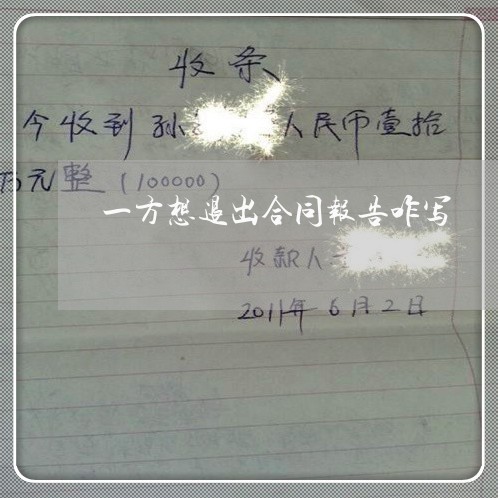 收条
今收到孙 人民币壹拾
万元整(100000)
一方想退出合同报告咋写
收款人
2011年6月2日